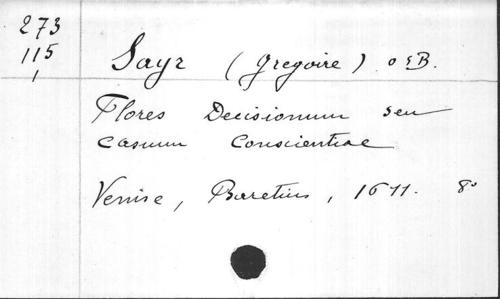 273
115
1
Sayr (Gregoire) OSB.
Flores Decisionum seu
casuum Conscientiae
Venise, Baretius, 1611. 8°